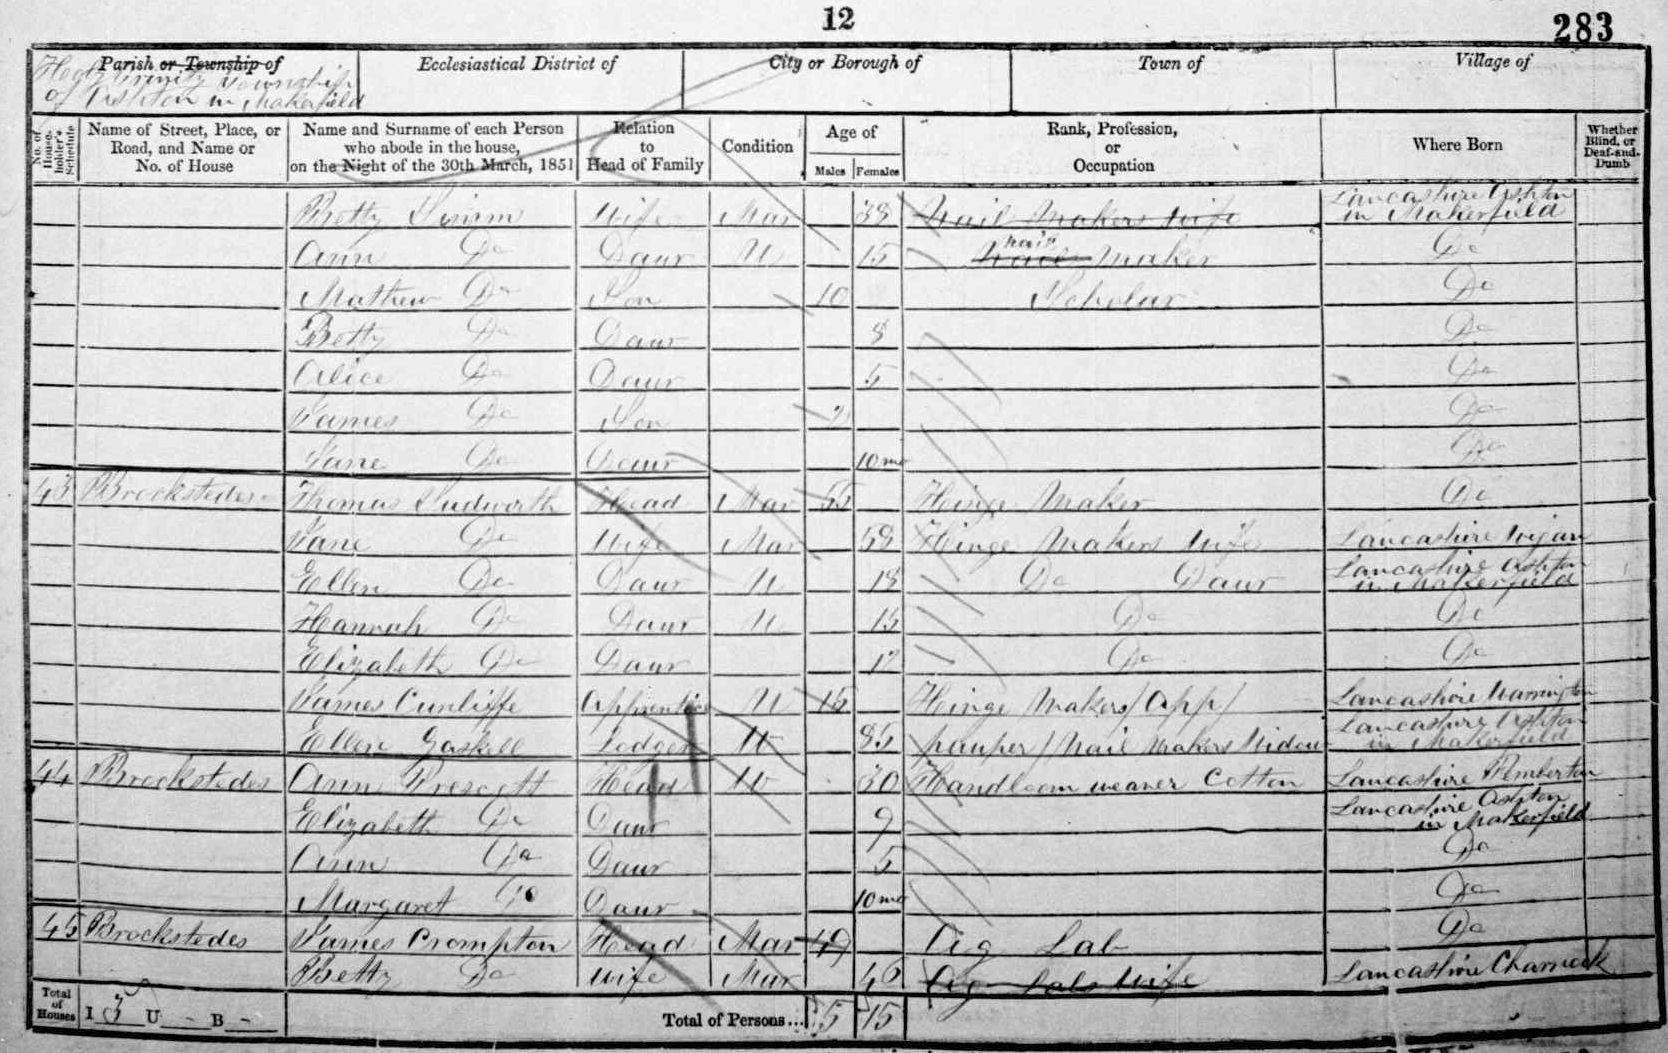 12
283
Parish or Township of
Ecclesiastical District of
City or Borough of
Town of
Village of
Holy Trinity Township
of Ashton in Makerfield
No. of House-holder's Schedule
Name of Street, Place, or Road, and Name or No. of House
Name and Surname of each Person who abode in the house, on the Night of the 30th March, 1851
Relation to Head of Family
Condition
Age of
Males
Females
Rank, Profession, or Occupation
Where Born
Whether Blind, or Deaf-and-Dumb
Betty Simm Wife Mar 38 Nail Makers Wife Lancashire Ashton in Makerfield
Ann Do Daur U 15 Nail nail Maker Do
Mathew Do Son 10 Scholar Do
Betty Do Daur 8 Do
Alice Do Daur 5 Do
James Do Son 2 Do
Jane Do Daur 10 mo Do
43 Brockstedes Thomas Sudworth Head Mar 55 Hinge Maker Do
Jane Do Wife Mar 58 Hinge Makers Wife Lancashire Wigan
Ellen Do Daur U 18 Do Daur Lancashire Ashton in Makerfield
Hannah Do Daur U 15 Do Do
Elizabeth Do Daur 12 Do Do
James Cunliffe Apprentice U 15 Hinge Makers/App/ Lancashire Warrington
Ellen Gaskell Lodger W 85 pauper/Nail Makers Widow Lancashire Ashton in Makerfield
44 Brockstedes Ann Prescott Head W 30 Handloom weaver Cotton Lancashire Pemberton
Elizabeth Do Daur 9 Lancashire Ashton in Makerfield
Ann Do Daur 5 Do
Margaret Do Daur 10 mo Do
45 Brockstedes James Crompton Head Mar 49 Ag Lab Do
Betty Do Wife Mar 46 Ag Labs Wife Lancashire Charnock
Total of Houses I 3 U - B -
Total of Persons... 5 15